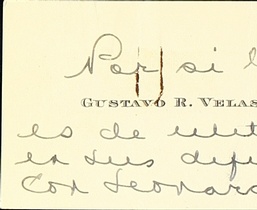 Por si l
GUSTAVO R. VELAS
es de
en sus
Con Leonar